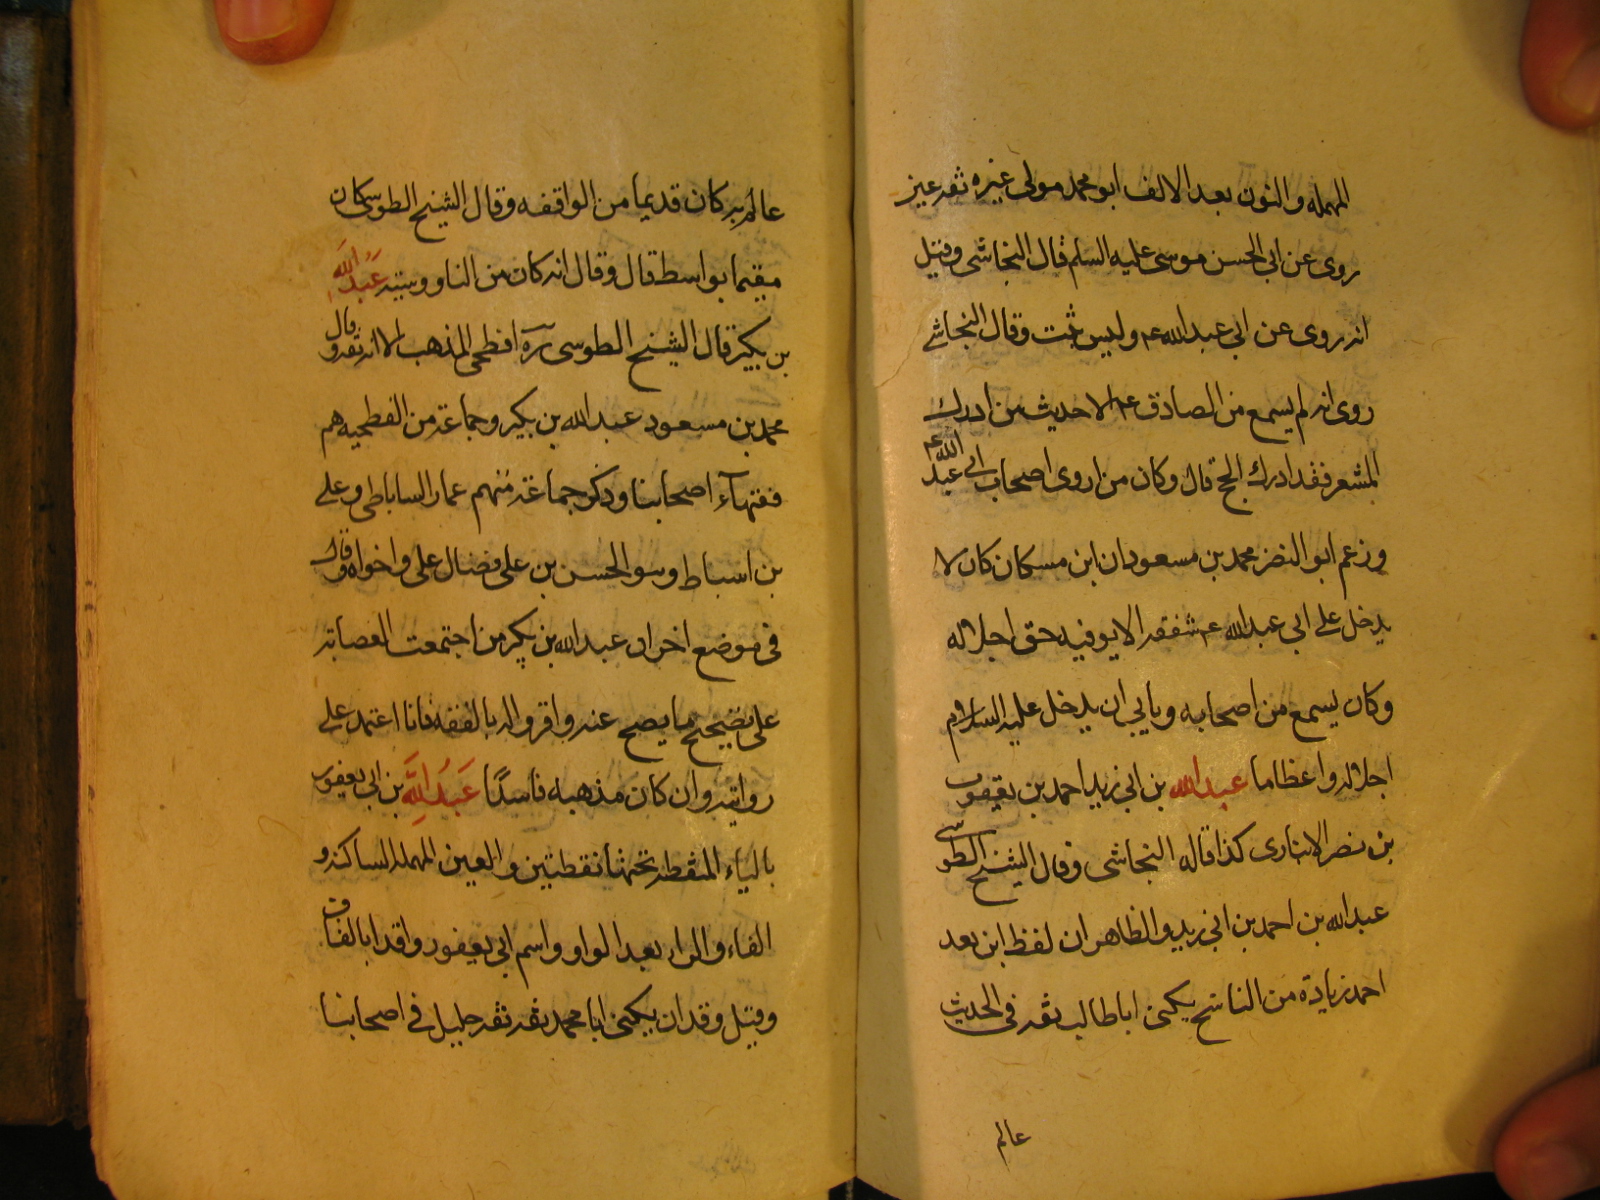 المهمله والنون بعد الالف ابو محمد مولى عنزه ثقه عين
روى عن ابى الحسن موسى عليه السلم قال النجاشى وقيل
انه روى عن ابى عبدالله ع وليس ثبت وقال النجاشے
روى انه لم يسمع من الصادق ع الا حديث من ادرك
المشعر فقد ادرك الحج قال وكان من اروى اصحاب ابى عبد الله ع
وزعم ابو النضر محمد بن مسعود ان ابن مسكان كان لا
يدخل على ابى عبدالله ع شفقه الا يوفيه حق اجلاله
وكان يسمع من اصحابه ويابى ان يدخل عليه السلام
اجلاله واعظاما عبدالله بن ابى زيد احمد بن يعقوب
بن نصر الانبارى كذا قاله النجاشى وقال الشيخ الطوسى
عبدالله بن احمد بن ابى زيد والظاهر ان لفظ ابن بعد
احمد زيادة من الناسخ يكنى اباطالب ثقه فى الحديث
عالم
عالم به كان قديما من الواقفه وقال الشيخ الطوسى كان
مقيما بواسط قال وقال انه كان من الناووسيه عَبدُ الله
بن بكير قال الشيخ الطوسى ره افطحى المذهب الا انه ثقه وقال
محمد بن مسعود عبدالله بن بكير وجماعة من الفطحيه هم
فقهآء اصحابنا وذكر جماعة منهم عمار الساباطى وعلى
بن اسباط وبنو الحسن بن على فضال على واخواه وقال
فى موضع اخر ان عبدالله بن بكير من اجتمعت العصابة
على تصحيح ما يصح عنه واقروا له بالفقه فانا اعتمد على
روايته وان كان مذهبه فاسدًا عَبدُ اللهِ بن ابى يعفور
بالياء المنقطه تحتها نقطتين والعين المهمله الساكنه و
الفاء والراء بعد الواو واسم ابى يعفور واقد بالقاف
وقيل وقدان يكنى ابا محمد ثقه ثقه جليل فى اصحابنا